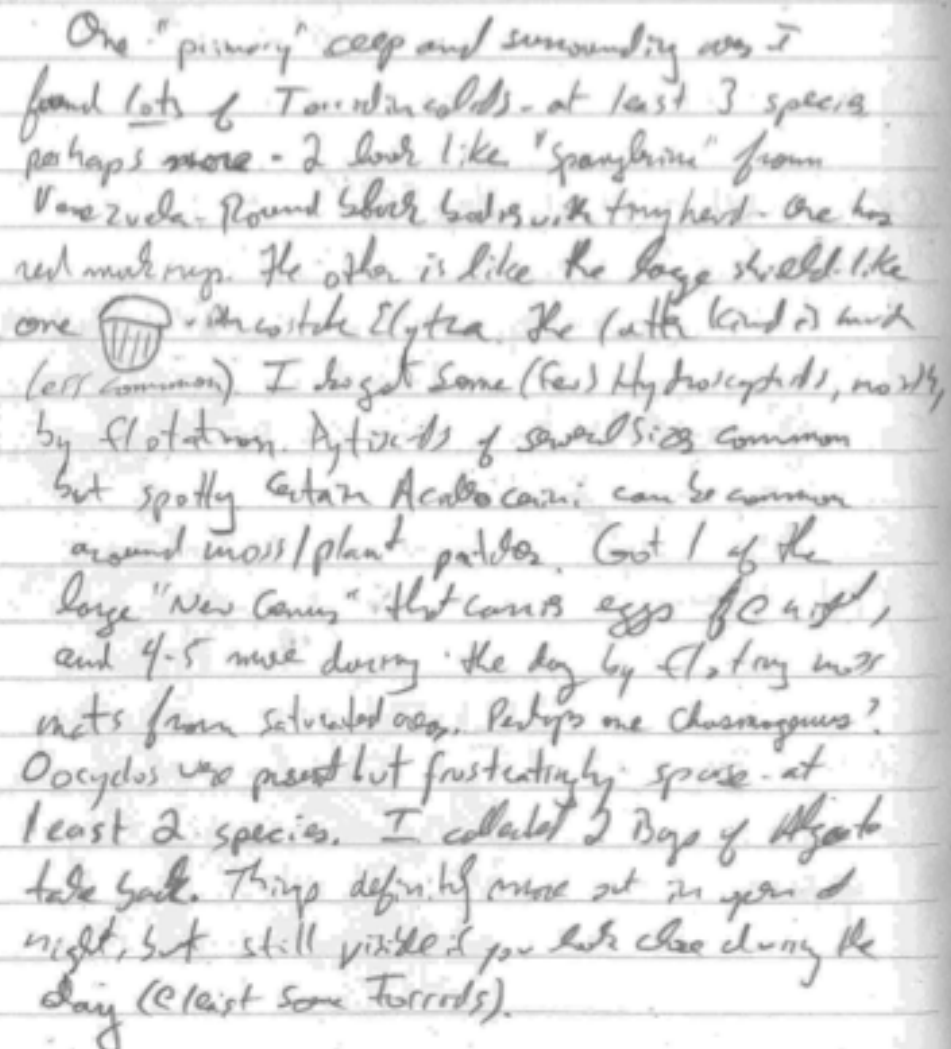 One "primary" seep and surrounding area I
found lots of Torridincolids - at least 3 species
perhaps more - 2 look like "Spanglerina" from
Venezuela - Round black bodies with tiny head - One has
red markings. The other is like the large shield-like
one with costate Elytra. The latter kind is much
less common). I also got Some (few) Hydroscaphids, mostly
by flotation. Dytiscids of several sizes common
but spotty Certain Acidocerini can be common
around moss/plant patches. Got 1 of the
large "New Genus" that carries eggs @ night,
and 4-5 more during the day by floating moss
mats from saturated areas. Perhaps one Chasmogenus?
Oocyclus were present but frustratingly sparse - at
least 2 species. I collected 2 Bags of Algae to
take back. Things definitely more out in open at
night, but still visible if you look close during the
day (@ least Some Torrids).